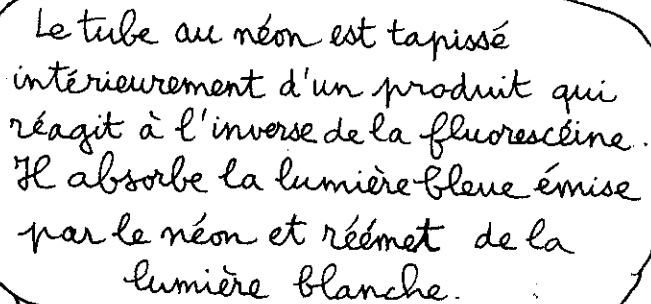 Le tube au néon est tapissé
intérieurement d'un produit qui
réagit à l'inverse de la fluorescéine.
Il absorbe la lumière bleue émise
par le néon et réémet de la
lumière blanche.